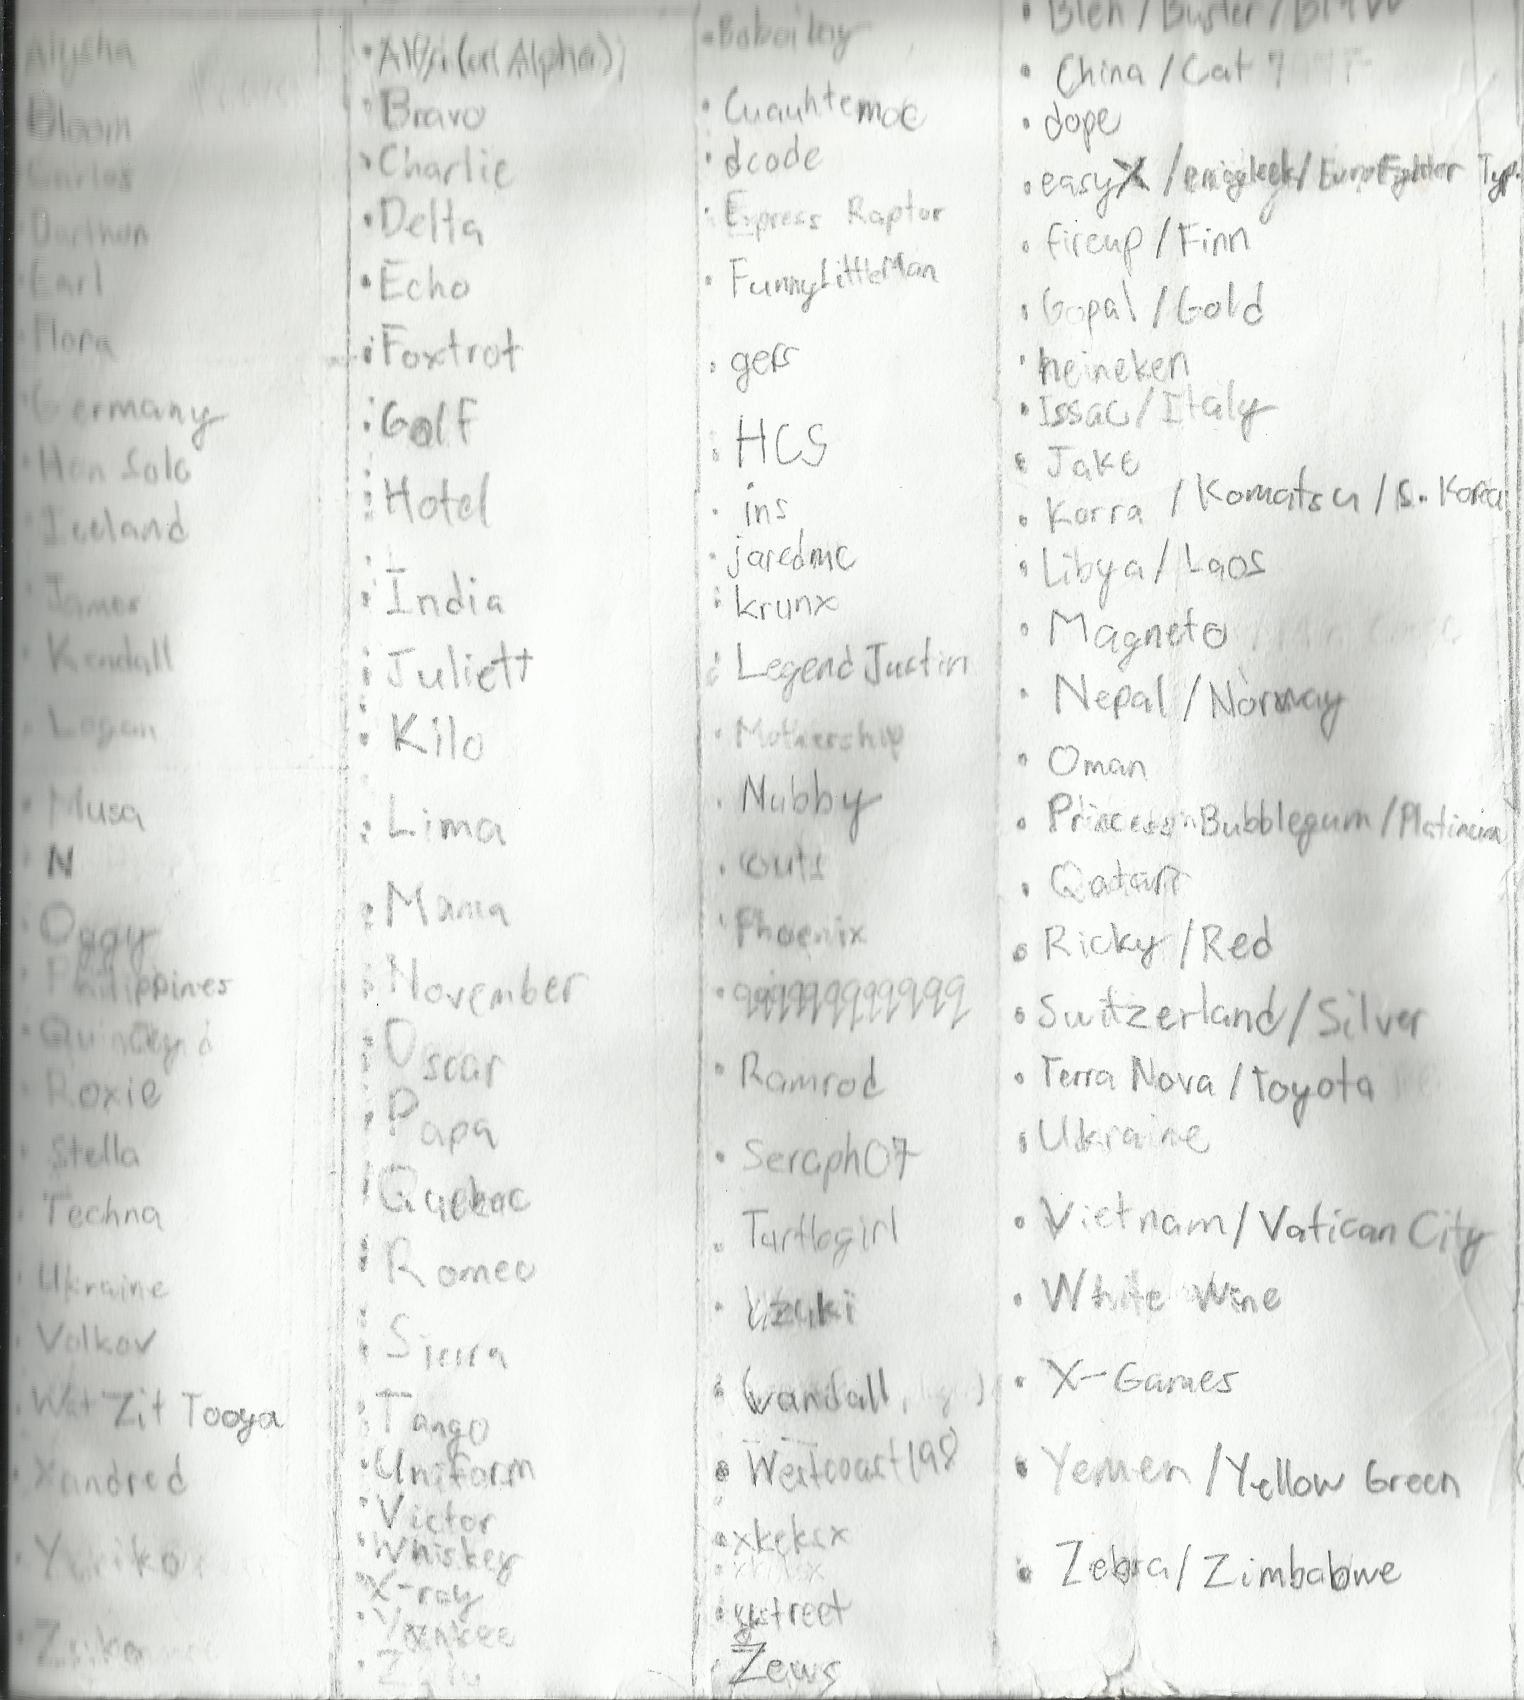 Alysha
Bloom
Carlos
Darthon
Earl
Flora
Germany
Han Solo
Iceland
James
Kendall
Logan
Musa
N
Oggy
Philippines
Roxie
Stella
Techna
Ukraine
Volkov
Wat Zit Tooya
Xandred
Yuriko
• Alfa (or Alpha)
• Bravo
• Charlie
• Delta
• Echo
• Foxtrot
• Golf
• Hotel
• India
• Juliett
• Kilo
• Lima
• Mama
• November
• Oscar
• Papa
• Quebec
• Romeo
• Sierra
• Tango
• Uniform
• Victor
• Whiskey
• X-ray
• Yankee
• Zulu
• Boboiboy
• Cuauhtemoc
• dcode
• Express Raptor
• FunnyLittleMan
• gers
• HCS
• ins
• jaredmc
• krunx
• Legend Justin
• Mothership
• Nubby
• outs
• Phoenix
• qqqqqqqqqqqq
• Ramrod
• Seraph07
• Turtlegirl
• Uzuki
• (vandall,
• Westcoast198
• xkeksx
• ystreet
• Zews
• Bleh / Buster / BMW
• China / Cat 7
• dope
• easyX / / EuroFighter Typ.
• fireup / Finn
• Gopal / Gold
• heineken
• Issac / Italy
• Jake
• Korra / Komatsu / S. Korea
• Libya / Laos
• Magneto
• Nepal / Norway
• Oman
• Princess Bubblegum / Platinum
• Qatar
• Ricky / Red
• Switzerland / Silver
• Terra Nova / Toyota
• Ukraine
• Vietnam / Vatican City
• White Wine
• X-Games
• Yemen / Yellow Green
• Zebra / Zimbabwe